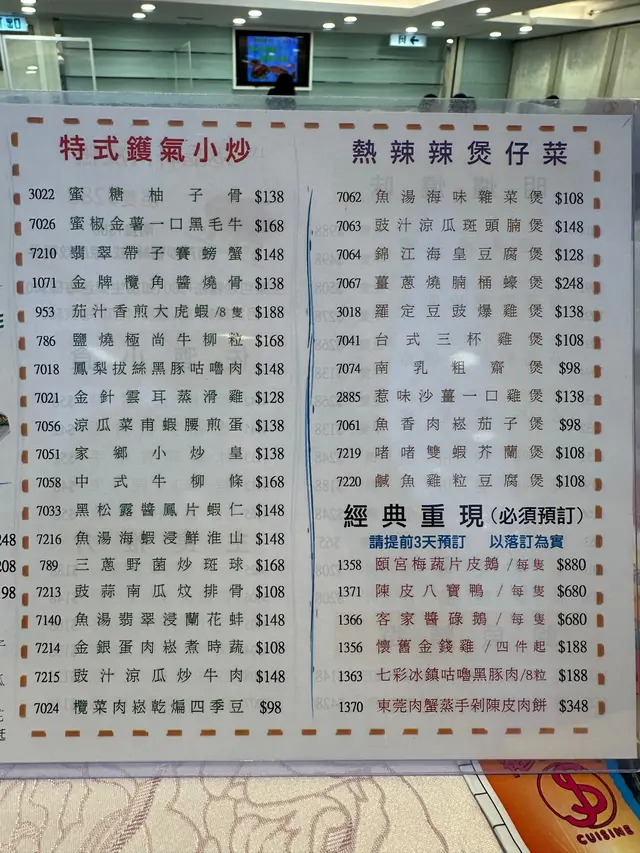 特式鑊氣小炒
3022 蜜糖柚子骨 $138
7026 蜜椒金薯一口黑毛牛 $168
7210 翡翠帶子賽螃蟹 $148
1071 金牌欖角醬燒骨 $138
953 茄汁香煎大虎蝦/8隻 $188
786 鹽燒極尚牛柳粒 $168
7018 鳳梨拔絲黑豚咕嚕肉 $148
7021 金針雲耳蒸滑雞 $128
7056 涼瓜菜甫蝦腰煎蛋 $138
7051 家鄉小炒皇 $138
7058 中式牛柳條 $168
7033 黑松露醬鳳片蝦仁 $148
7216 魚湯海蝦浸鮮淮山 $148
789 三蔥野菌炒斑球 $168
7213 豉蒜南瓜炆排骨 $108
7140 魚湯翡翠浸蘭花蚌 $148
7214 金銀蛋肉崧煮時蔬 $108
7215 豉汁涼瓜炒牛肉 $148
7024 欖菜肉崧乾煸四季豆 $98
熱辣辣煲仔菜
7062 魚湯海味雜菜煲 $108
7063 豉汁涼瓜斑頭腩煲 $148
7064 錦江海皇豆腐煲 $128
7067 薑蔥燒腩桶蠔煲 $248
3018 羅定豆豉爆雞煲 $138
7041 台式三杯雞煲 $108
7074 南乳粗齋煲 $98
2885 惹味沙薑一口雞煲 $138
7061 魚香肉崧茄子煲 $98
7219 啫啫雙蝦芥蘭煲 $108
7220 鹹魚雞粒豆腐煲 $108
經典重現(必須預訂)
請提前3天預訂 以落訂為實
1358 頤宮梅蔬片皮鵝/每隻 $880
1371 陳皮八寶鴨/每隻 $680
1366 客家醬碌鵝/每隻 $680
1356 懷舊金錢雞/四件起 $188
1363 七彩冰鎮咕嚕黑豚肉/8粒 $188
1370 東莞肉蟹蒸手剁陳皮肉餅 $348
248
208
98
CUISINE